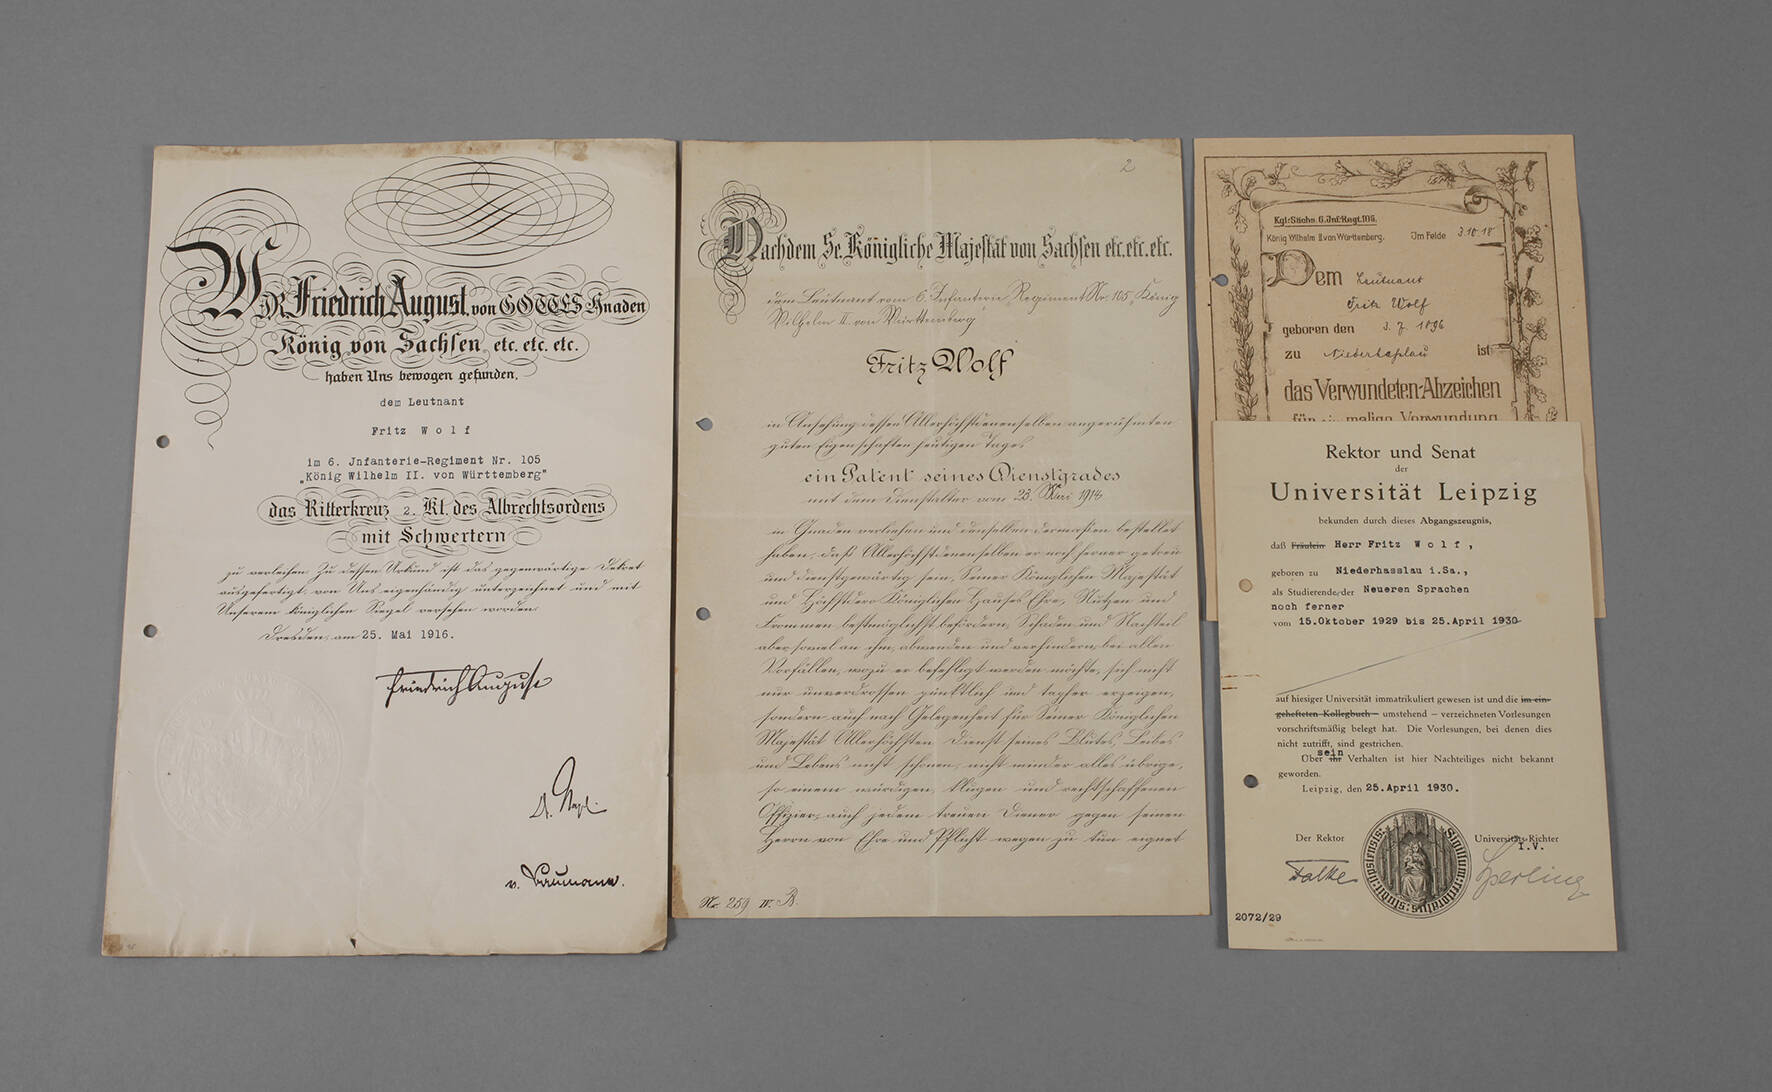 WIR Friedrich August, von GOTTES Gnaden
König von Sachsen, etc. etc. etc.
haben Uns bewogen gefunden,
dem Leutnant
Fritz Wolf
im 6. Jnfanterie-Regiment Nr. 105
„König Wilhelm II. von Württemberg"
das Ritterkreuz 2. Kl. des Albrechtsordens
mit Schwertern
zu verleihen. Zu dessen Urkund ist das gegenwärtige Dekret
ausgefertigt, von Uns eigenhändig unterzeichnet und mit
Unserem Königlichen Siegel versehen worden.
Dresden, am 25. Mai 1916.
Friedrich August
2
Nachdem Se. Königliche Majestät von Sachsen etc. etc. etc.
dem Leutnant vom 6. Infanterie Regiment Nr. 105 „König
Wilhelm II. von Württemberg"
Fritz Wolf
in Ansehung dessen Allerhöchstdenenselben angerühmten
guten Eigenschaften heutigen Tages
ein Patent seines Dienstgrades
mit dem Dienstalter vom 23.
in Gnaden verliehen und denselben dermaßen bestellet
haben, daß Allerhöchstdenenselben er noch ferner getreu
und dienstgewärtig sein, Seiner Königlichen Majestät
und Höchstdero Königlichen Hauses Ehre, Nutzen und
Frommen bestmöglichst befördern, Schaden und Nachteil
aber, soviel an ihm, abwenden und verhindern, bei allen
Vorfällen, wozu er befehligt werden möchte, sich nicht
nur unverdrossen pünktlich und tapfer erzeigen,
sondern auch nach Gelegenheit für Seiner Königlichen
Majestät Allerhöchsten Dienst seines Blutes, Leibes
und Lebens nicht schonen, nicht minder alles übrige,
so einem würdigen, klugen und rechtschaffenen
Offizier, auch jedem treuen Diener gegen seinen
Herrn von Ehre und Pflicht wegen zu tun eignet
Nr. 259 IV. B.
Kgl. Sächs. 6. Inf. Regt. 105.
König Wilhelm II von Württemberg. Im Felde 3.10.18
Dem Leutnant
Fritz Wolf
geboren den 3.7.1896
zu Niederhaßlau ist
das Verwundeten-Abzeichen
für einmalige Verwundung
Rektor und Senat
der
Universität Leipzig
bekunden durch dieses Abgangszeugnis,
daß Fräulein Herr Fritz Wolf,
geboren zu Niederhasslau i.Sa.,
als Studierender der Neueren Sprachen
noch ferner
vom 15.Oktober 1929 bis 25.April 1930
auf hiesiger Universität immatrikuliert gewesen ist und die im ein-
gehefteten Kollegbuch – umstehend – verzeichneten Vorlesungen
vorschriftsmäßig belegt hat. Die Vorlesungen, bei denen dies
nicht zutrifft, sind gestrichen.
sein
Über ihr Verhalten ist hier Nachteiliges nicht bekannt
geworden.
Leipzig, den 25.April 1930.
Der Rektor
Universitäts-Richter
I.V.
Falke
Sperling
2072/29